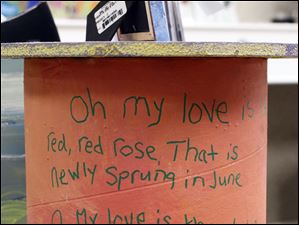 Oh my love is
red, red rose, That is
newly sprung in June
O My love is the